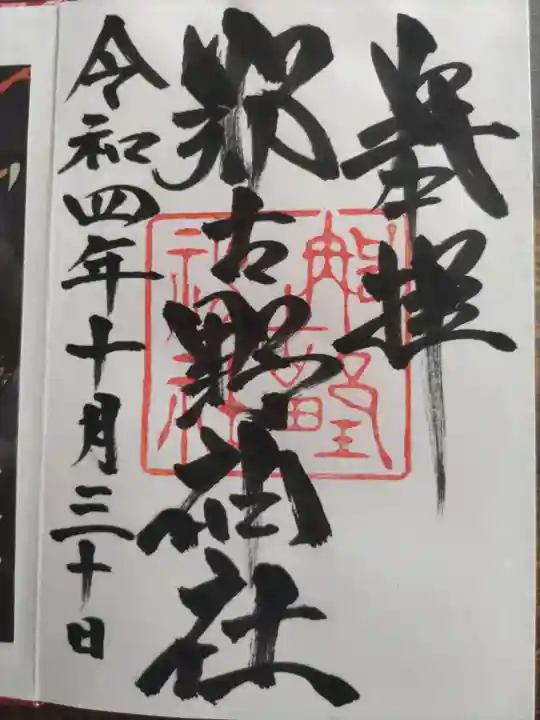 奉拝
那古野神社
令和四年十月三十日